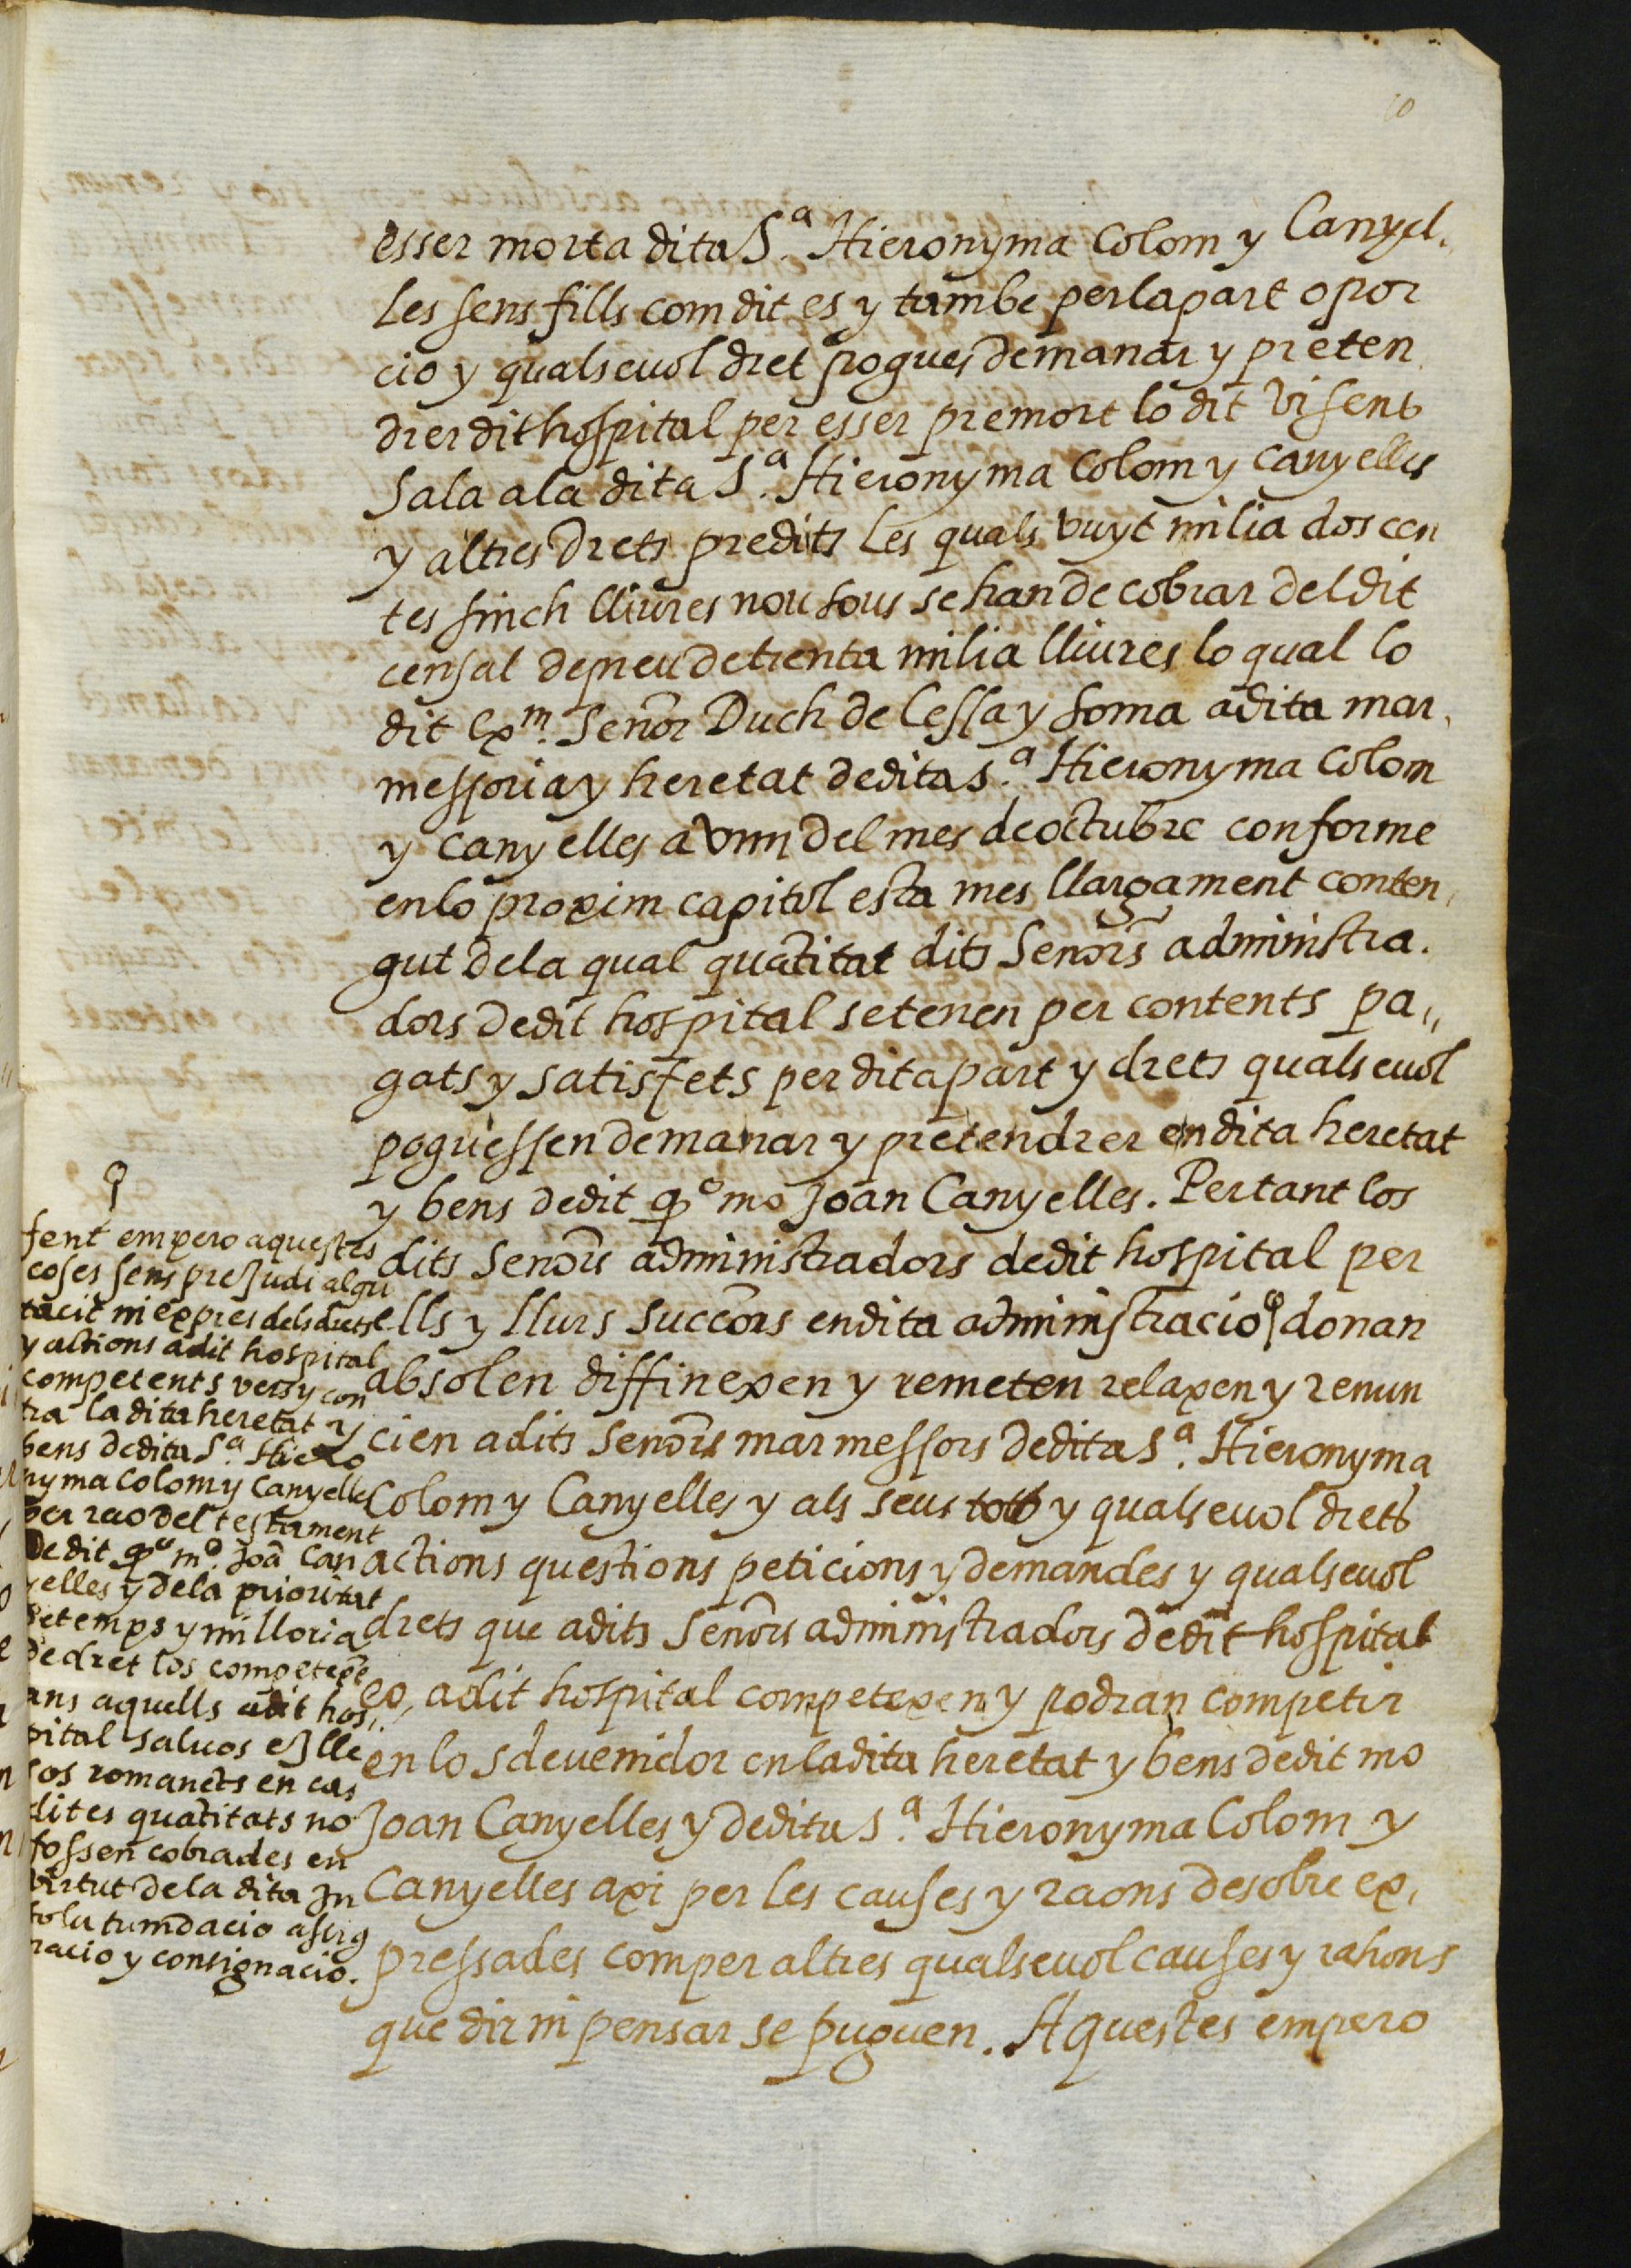 10
esser morta dita S.ª Hieronyma Colom y Canyel.
les sens fills com dit es y tambe per la part o por
cio y qualseuol dret pogues demanar y preten
drer dit hospital per esser premort lo dit Visent
Sala a la dita S.ª Hieronyma Colom y Canyelles
y altres drets predits Les quals vuyt milia dos cen
tes sinch lliures nou sous se han de cobrar del dit
censal de preu de trenta milia lliures lo qual lo
dit Exm. Senõr Duch de Cessa y Soma a dita mar,
messoria y heretat de dita S.ª Hieronyma Colom
y Canyelles a del mes de octubre conforme
en lo proxim capitol esta mes llargament conten,
gut de la qual quãtitat dits Senõrs administra.
dors de dit hospital se tenen per contents pa,,
gats y satisfets per dita part y drets qualseuol
poguessen demanar y pretendrer en dita heretat
y bens de dit qº mo Joan Canyelles. Per tant los
dits Senõrs administradors de dit hospital per
ells y llurs succõrs en dita administracio donan
absolen diffinexen y remeten relaxen y renun
cien a dits Senõrs marmessors de dita S.ª Hieronyma
Colom y Canyelles y als seus tots y qualseuol drets
actions questions peticions y demandes y qualseuol
drets que a dits Senõrs administradors de dit hospital
eo, a dit hospital competexen y podran competir
en lo sdeuenidor en la dita heretat y bens de dit mo
Joan Canyelles y de dita S.ª Hieronyma Colom y
Canyelles axi per les causes y raons desobre ex,
pressades com per altres qualseuol causes y rahons
que dir ni pensar se puguen. Aquestes empero
fent empero aquestes
coses sens preJudi algu
tacit ni expres dels drets
y actions a dit hospital
competents vers y con
tra la dita heretat y
bens de dita S.ª Hiero
nyma Colom y Canyelles
per rao del testament
de dit qº mº. Joã Can
yelles y de la prioritat
de temps y milloria
de dret los competexẽ
ans aquells a dit hos,,
pital saluos e Jlle
sos romanẽts en cas
dites quãtitats no
fossen cobrades en
virtut de la dita In
solutumdacio assig
nacio y consignacio.